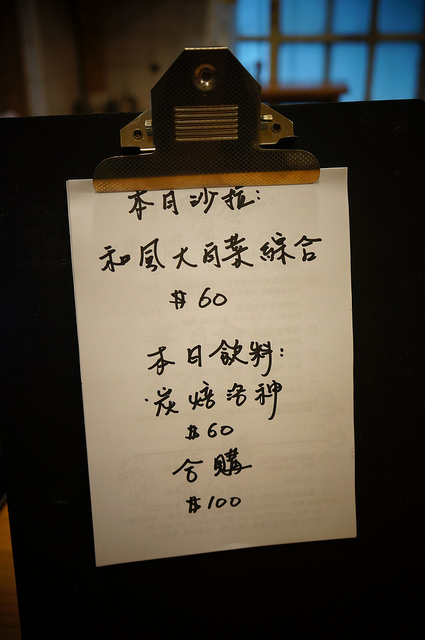 本日沙拉:
和風大白菜綜合
$60
本日飲料:
·炭焙洛神
$60
合購
$100